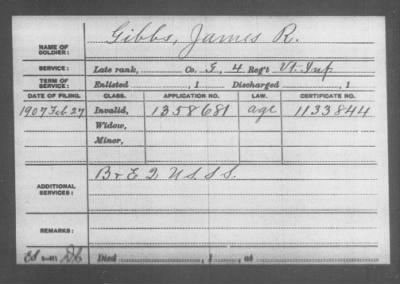 NAME OF SOLDIER: Gibbs, James R.
SERVICE: Late rank, Co. G, 4 Reg't Vt. Inf
TERM OF SERVICE: Enlisted , 1 Discharged , 1
DATE OF FILING. CLASS. APPLICATION NO. LAW. CERTIFICATE NO.
1907 Feb 27 Invalid, 1358681 age 1133844
Widow,
Minor,
ADDITIONAL SERVICES: B & E 2 U.S.S.S.
REMARKS:
Died , 1 , at